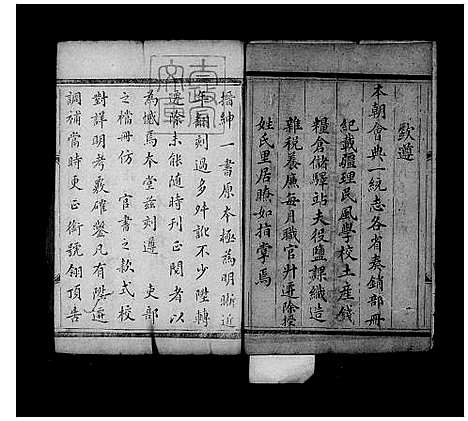 欽遵
本朝會典一統志各省奏銷部冊
紀載疆理民風學校土產錢
糧倉儲驛站夫役鹽課織造
雜稅養廉每月職官升遷除授
姓氏里居瞭如指掌焉
搢紳一書原本極為明晰近
年翻刻過多舛訛不少陞轉
遷除未能隨時刊正閱者以
為憾焉本堂茲刻遵 吏部
之檔冊仿 官書之款式校
對詳明考覈確鑿凡有陞遷
調補當時更正銜號翎頂告